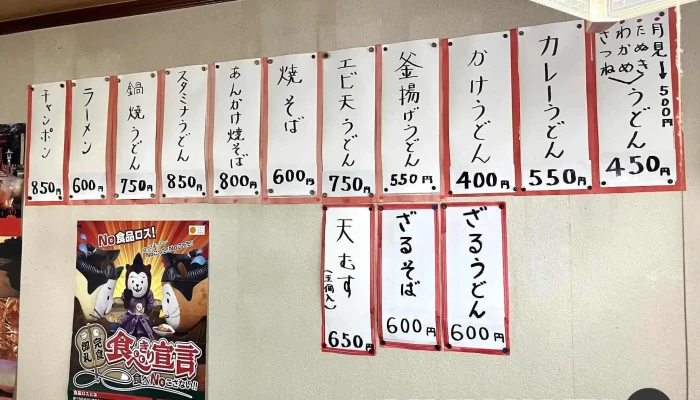 月見→500円
たぬき
わかめ
きつね
うどん
450円
カレーうどん
550円
かけうどん
400円
釜揚げうどん
550円
エビ天うどん
750円
焼そば
600円
あんかけ焼そば
800円
スタミナうどん
850円
鍋焼うどん
750円
ラーメン
600円
チャンポン
850円
ざるうどん
600円
ざるそば
600円
天むす
650円
No食品ロス!
完食
御礼
食べきり宣言
食べNoこさない!!
食品ロスとは